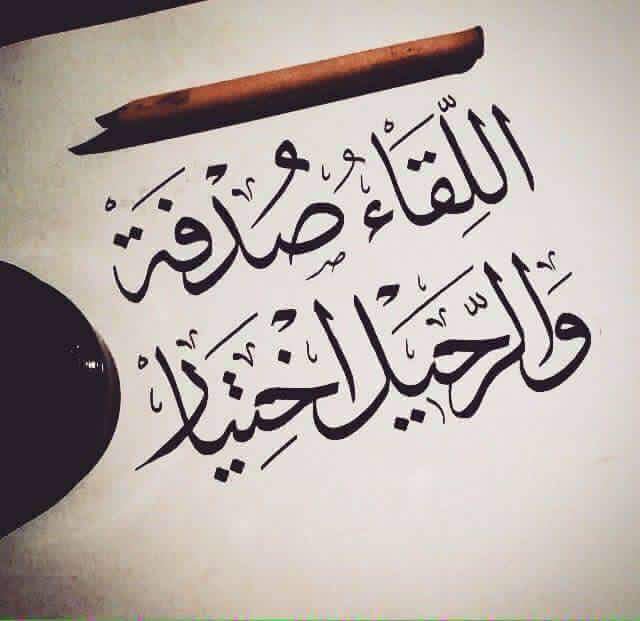 اللِّقَاءُ صُدْفَةْ
وَالرَّحيَلْ اخْتِيَارْ